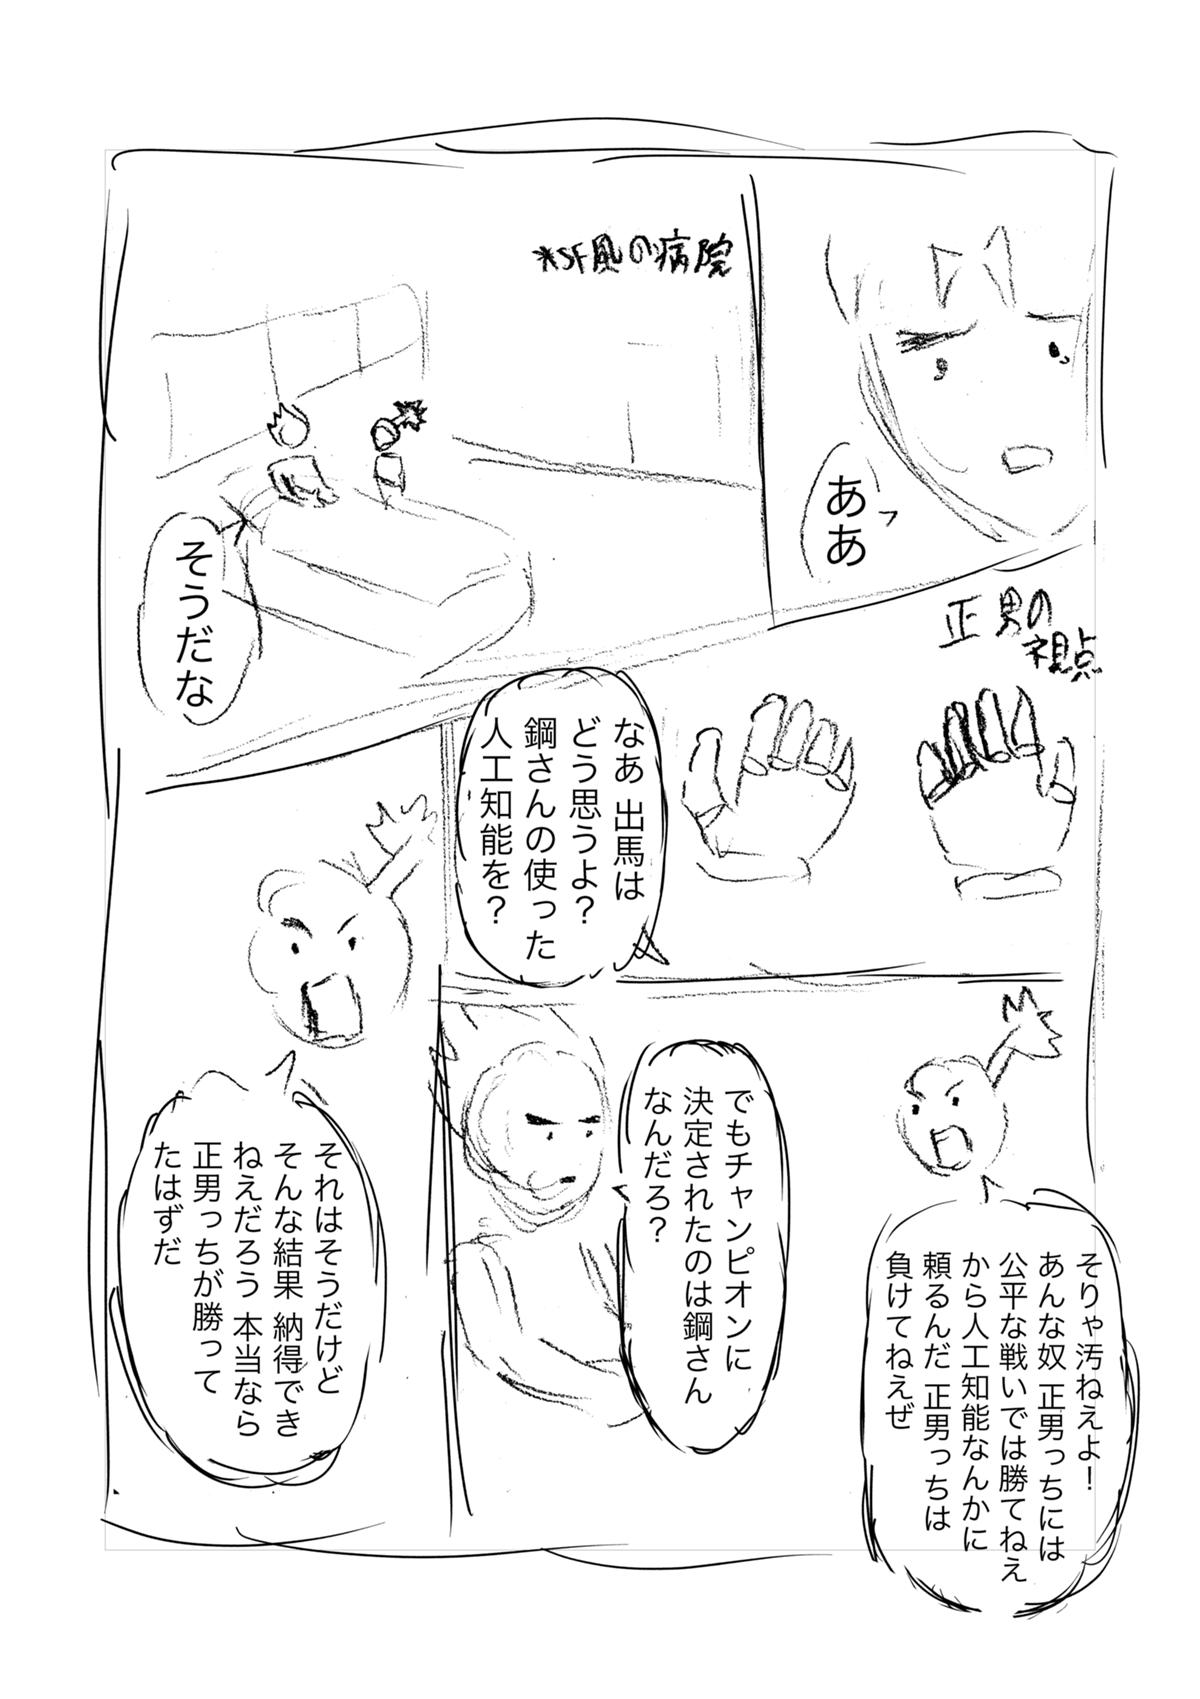 ああ
っ
*SF風の病院
そうだな
正男の
視点
なあ 出馬は
どう思うよ？
鋼さんの使った
人工知能を？
そりゃ汚ねえよ！
あんな奴 正男っちには
公平な戦いでは勝てねえ
から人工知能なんかに
頼るんだ 正男っちは
負けてねえぜ
でもチャンピオンに
決定されたのは鋼さん
なんだろ？
それはそうだけど
そんな結果 納得でき
ねえだろう 本当なら
正男っちが勝って
たはずだ